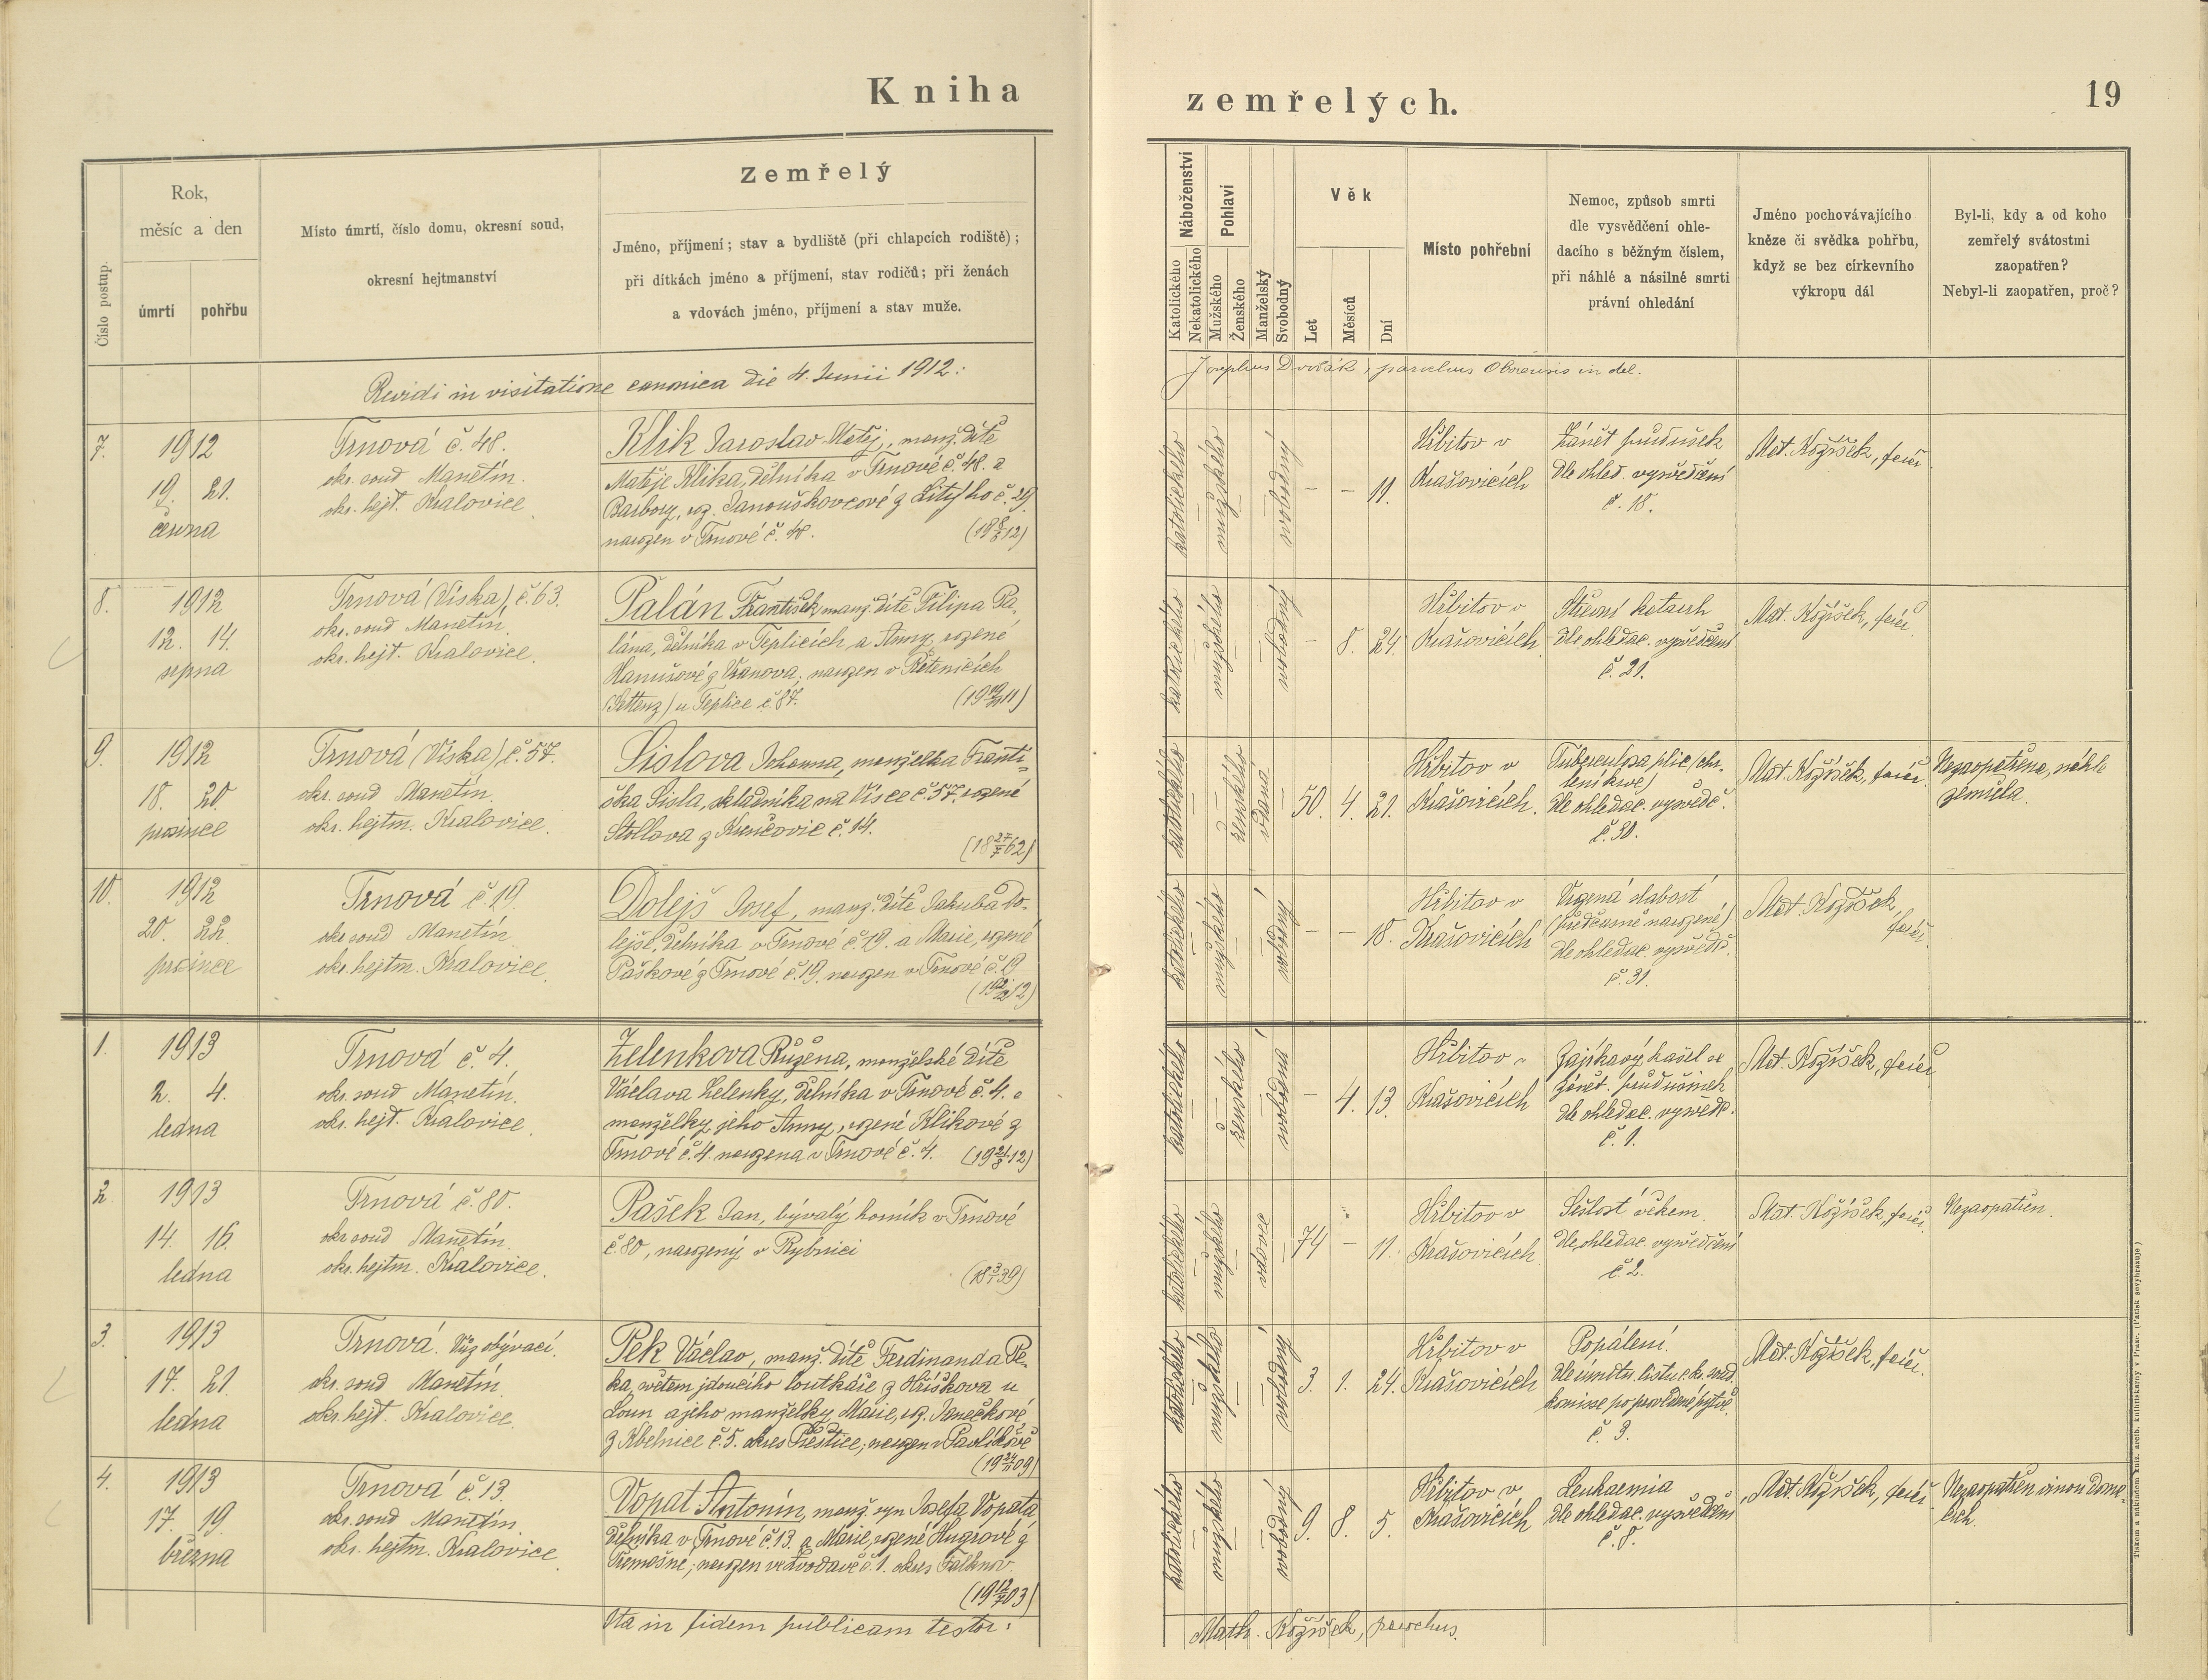 Kniha zemřelých.
19
Číslo postup.
Rok,
měsíc a den
úmrtí
pohřbu
Místo úmrtí, číslo domu, okresní soud,
okresní hejtmanství
Zemřelý
Jméno, příjmení; stav a bydliště (při chlapcích rodiště);
při dítkách jméno a příjmení, stav rodičů; při ženách
a vdovách jméno, příjmení a stav muže.
Náboženství
Katolického
Nekatolického
Pohlaví
Mužského
Ženského
Manželský
Svobodný
Věk
Let
Měsíců
Dní
Místo pohřební
Nemoc, způsob smrti
dle vysvědčení ohle-
dacího s běžným číslem,
při náhlé a násilné smrti
právní ohledání
Jméno pochovávajícího
kněze či svědka pohřbu,
když se bez církevního
výkropu dál
Byl-li, kdy a od koho
zemřelý svátostmi
zaopatřen?
Nebyl-li zaopatřen, proč?
Revidi in visitatione canonica die 4. Junii 1912:
Josephus Dvořák, parochus Oboensis in del.
7.
1912
19. 21.
června
Trnová č. 48.
okr. soud Manetín.
okr. hejt. Kralovice
Klik Jaroslav Matěj, manž. dítě
Matěje Klika, dělníka v Trnové č. 48. a
Barbory, roz. Janouškovcové z Litýho č. 29
narozen v Trnové č. 48.
(19 8/6 12)
katolického
mužského
svobodný
– – 11.
Hřbitov v
Krašovicích
Zánět průdušek
dle ohled. vysvědčení
č. 18.
Mat. Kožíšek, farář
8.
1912
12. 14.
srpna
Trnová (Víska), č. 63.
okr. soud Manetín
okr. hejt. Kralovice.
Palán František manž. dítě Filipa Pa-
lána, dělníka v Teplicích a Anny, rozené
Hanušové z Vranova; narozen v Řetenicích
(Settenz) u Teplice č. 87.
katolického
mužského
svobodný
– 8. 24.
Hřbitov v
Krašovicích
Střevní katarrh
dle ohledac. vysvědčení
č. 21.
Mat. Kožíšek, farář
9.
1912
18. 20.
prosince
Trnová (Víska) č. 57.
okr. soud Manetín.
okr. hejtm. Kralovice.
Sislova Johanna, manželka Franti-
ška Sisla, skladníka na Vísce č. 57. rozené
Stollova z Kunčovic č. 14.
(18 27/7 62)
katolického
ženského
vdaná
50. 4. 21.
Hřbitov v
Krašovicích.
Tuberculosa plic (chr-
lení krve)
dle ohledac. vysvědč.
č. 30.
Mat. Kožíšek, farář
Nezaopatřena, náhle
zemřela.
10.
1912
20. 22.
prosince
Trnová č. 19.
okr. soud Manetín
okr. hejtm. Kralovice.
Dolejš Josef, manž. dítě Jakuba Do-
lejše, dělníka v Trnové č. 19. a Marie, rozené
Paškové z Trnové č. 19. narozen v Trnové č. 19
(19 2/12 12)
katolického
mužského
svobodný
– – 18.
Hřbitov v
Krašovicích
Vrozená slabost
(předčasně narozené)
dle ohledac. vysvědč.
č. 31.
Mat. Kožíšek,
farář.
1.
1913
2. 4.
ledna
Trnová č. 4.
okr. soud Manetín.
okr. hejt. Kralovice.
Zelenkova Růžena, manželské dítě
Václava Zelenky, dělníka v Trnové č. 4. a
manželky jeho Anny, rozené Klikové z
Trnové č. 4. narozena v Trnové č. 4. (19 21/8 12)
katolického
ženského
svobodná
– 4. 13.
Hřbitov v
Krašovicích
Zajíkavý kašel a
zánět. průdušinek
dle ohledac. vysvědč.
č. 1.
Mat. Kožíšek, farář
2.
1913
14. 16.
ledna
Trnová č. 80.
okr. soud Manetín.
okr. hejtm. Kralovice.
Pašek Jan, bývalý horník v Trnové
č. 80, narozený v Rybnici
(18 3/1 39)
katolického
mužského
vdovec
74 – 11.
Hřbitov v
Krašovicích
Sešlost věkem.
dle ohledac. vysvědčení
č. 2.
Mat. Kožíšek, farář.
Nezaopatřen.
3.
1913
17. 21.
ledna
Trnová. Vůz obývací.
okr. soud Manetín
okr. hejt. Kralovice.
Pek Václav, manž. dítě Ferdinanda Pe-
ka, světem jdoucího loutkáře z Hříškova u
Loun a jeho manželky Marie, roz. Janečkové
z Kbelnice č. 5. okres Přeštice; narozen v Pavlíkově
katolického
mužského
svobodný
3. 1. 24.
Hřbitov v
Krašovicích
Popálení.
Dle úmrtn. listu c.k. soud.
komisse po provedené pytvě
č. 3.
Mat. Kožíšek, farář.
4.
1913
17. 19.
března
Trnová č. 13.
okr. soud Manetín
okr. hejtm. Kralovice
Vopat Antonín, manž. syn Josefa Vopata,
dělníka v Trnové č. 13. a Marie, rozené Hugrové z
Třemošné; narozen ve Svodavě č. 1. okres Falknov.
katolického
mužského
svobodný
9. 8. 5.
Hřbitov v
Krašovicích
Leukaemia
dle ohledac. vysvědčení
č. 8.
Mat. Kožíšek, farář
Nezaopatřen vinou domá-
cích.
Ita in fidem publicam testor:
Math. Kožíšek, parochus.